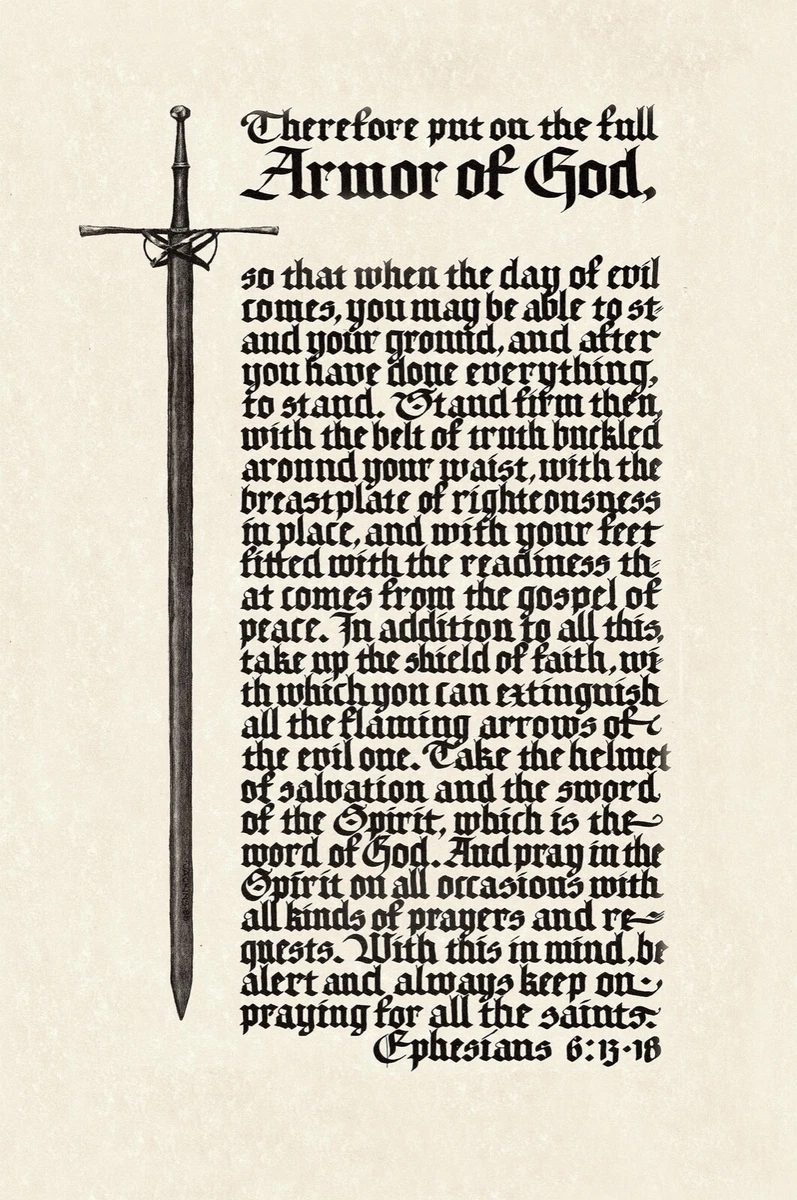 Therefore put on the full
Armor of God,
so that when the day of evil
comes, you may be able to st-
and your ground, and after
you have done everything,
to stand. Stand firm then,
with the belt of truth buckled
around your waist, with the
breastplate of righteousness
in place, and with your feet
fitted with the readiness th-
at comes from the gospel of
peace. In addition to all this,
take up the shield of faith, wi-
th which you can extinguish
all the flaming arrows of
the evil one. Take the helmet
of salvation and the sword
of the Spirit, which is the
word of God. And pray in the
Spirit on all occasions with
all kinds of prayers and re-
quests. With this in mind, be
alert and always keep on
praying for all the saints.
Ephesians 6:13-18